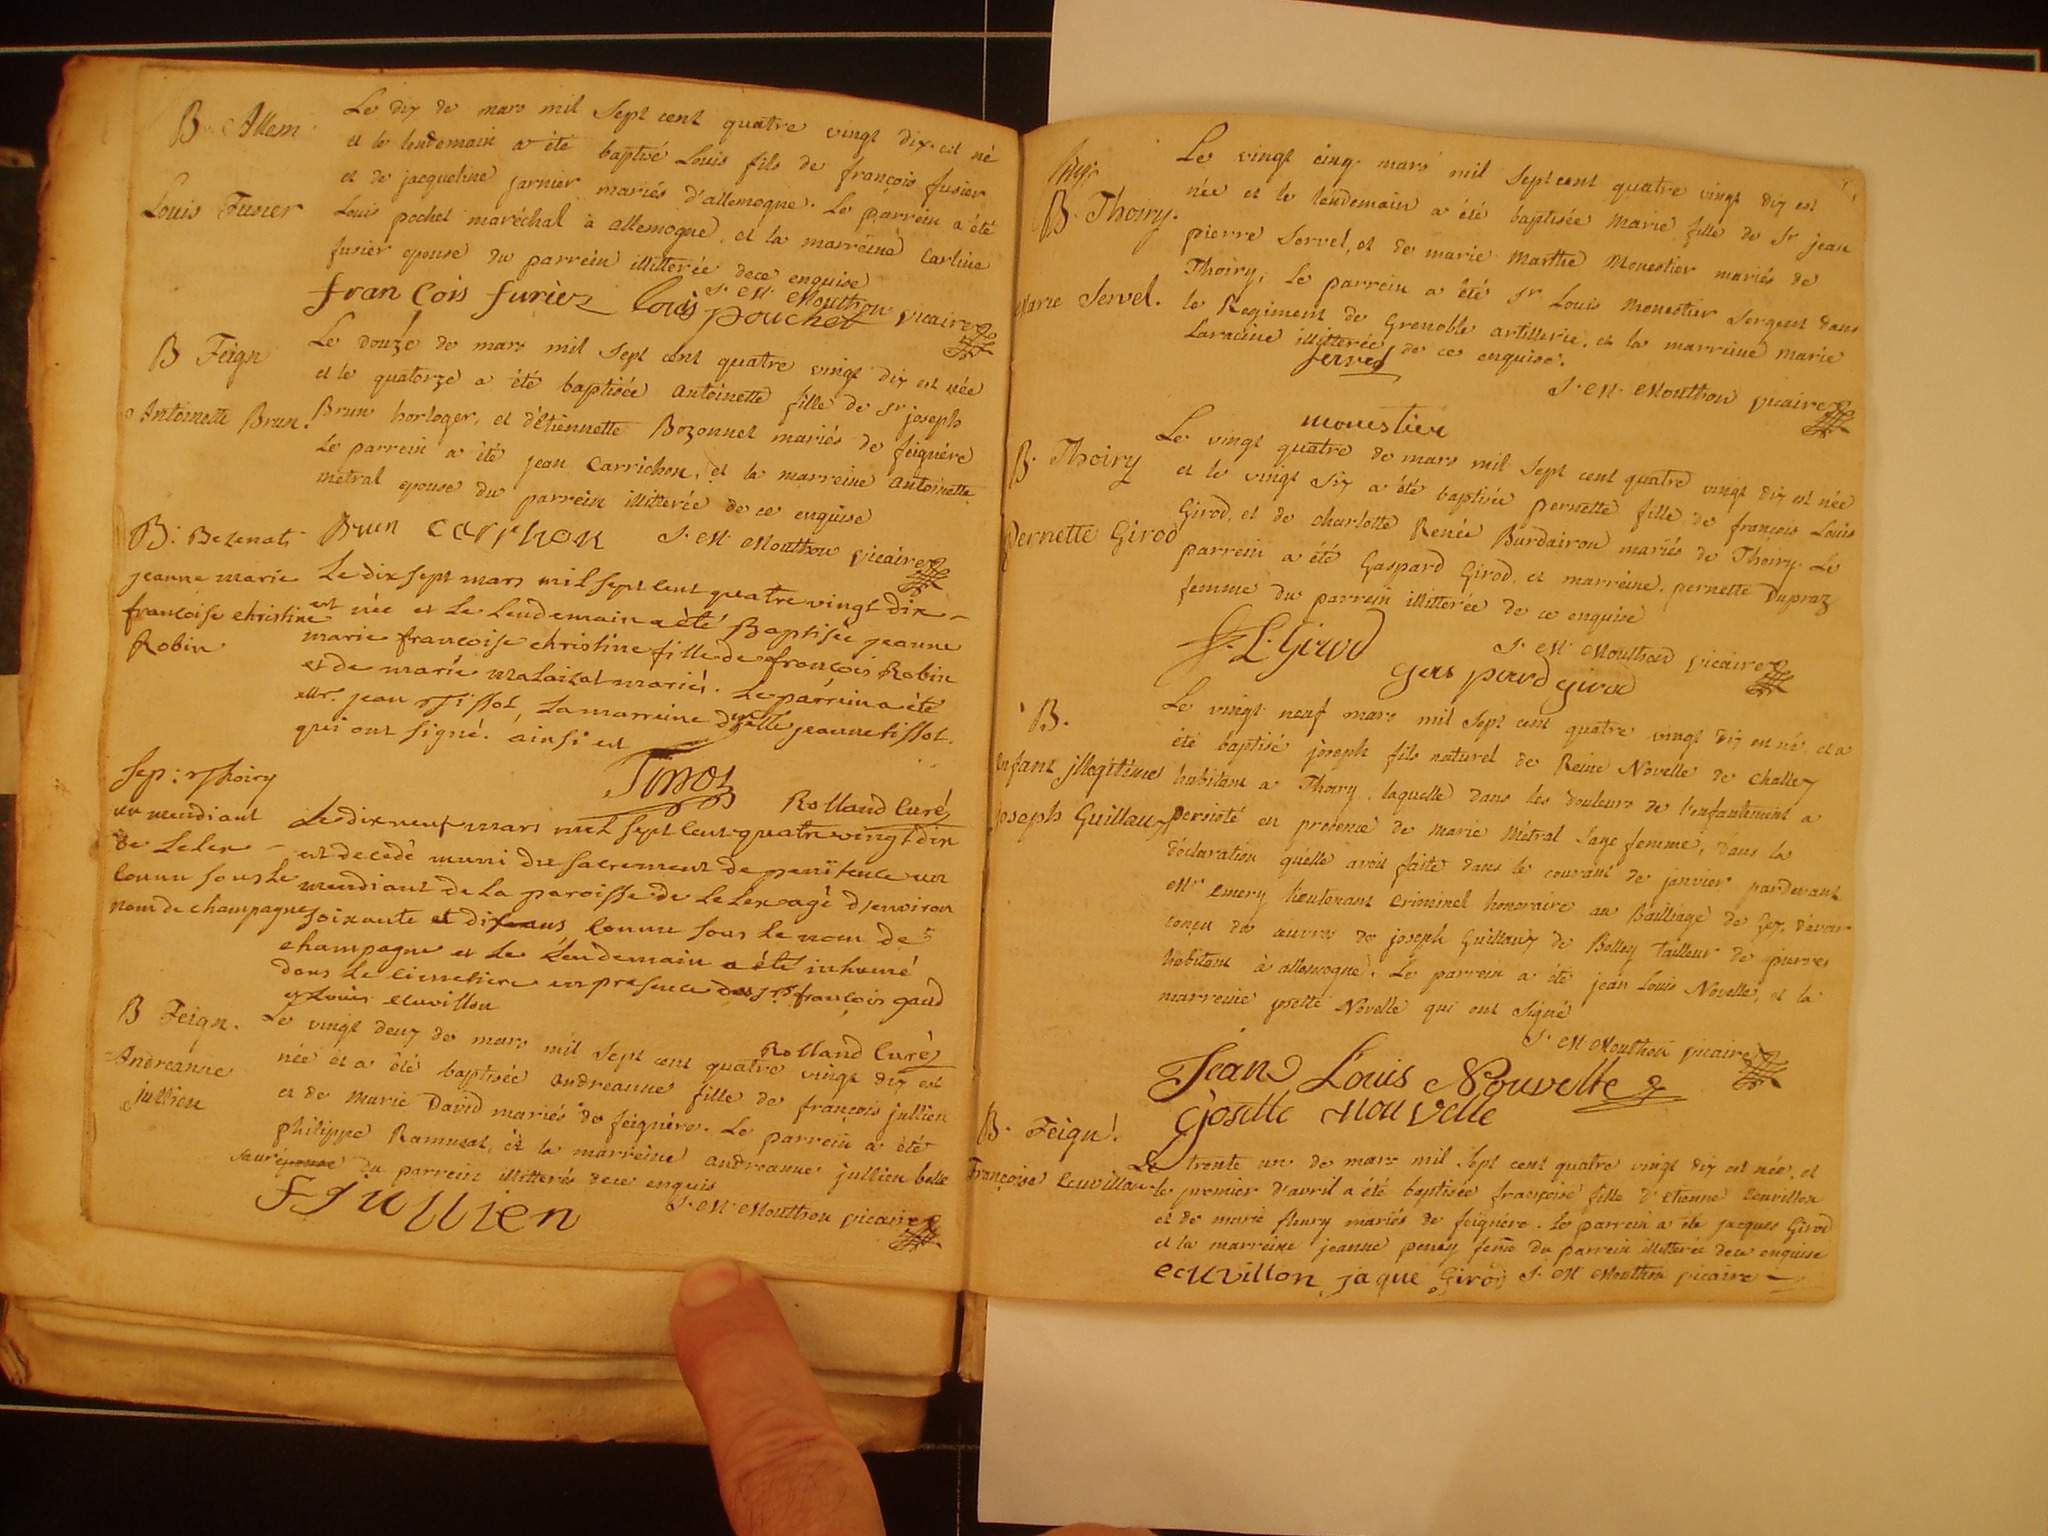 B. Allem
Louis Fusier
Le dix de mars mil sept cent quatre vingt dix est né
et le lendemain a été baptisé Louis fils de françois fusier
et de jacqueline jarnier mariés d'allemogne. Le parrein a été
Louis pochet maréchal à allemogne, et la marreine Carline
fusier epouse du parrein illitterée de ce enquise
J. M. Mouthon vicaire
fran Cois furiez Louis pouchet
B Feign
Antoinette Brun.
Le douze de mars mil sept cent quatre vingt dix est née
et le quatorze a été baptisée Antoinette fille de Sr joseph
Brun horloger, et d'étiennette Bozonnet mariés de feignére
Le parrein a été jean Carrichon, et la marreine Antoinette
métral epouse du parrein illitterée de ce enquise
Brun carichon J. M. Mouthon vicaire
B: Bezenat
jeanne marie
françoise christine
Robin
Le dix sept mars mil sept cent quatre vingt dix
est née et le lendemain a été Baptisée jeanne
marie françoise christine fille de françois Robin
et de marie malaizat mariés. Le parrein a été
Mr. jean tissot, la marreine dmelle jeanne tissot.
qui ont signé. ainsi est
Tissot Rolland Curé
Sep: Thoiry
un mendiant
de Lelex
connu sous le
nom de champagne
Le dix neuf mars mil sept cent quatre vingt dix
est decedé muni du sacrement de penitence un
mendiant de la paroisse de Lelex agé d'environ
soixante et dix ans connu sous le nom de
champagne et le Lendemain a été inhumé
dans le cimetiere en presence des srs françois gaud
et Louis ecuvillon
Rolland Curé
B Feign.
Andreanne
jullien
Le vingt deux de mars mil sept cent quatre vingt dix est
née et a été baptisée andreanne fille de françois jullien
et de Marie David mariés de feignére. Le parrein a été
philippe Ramusat, et la marreine andreanne jullien belle
saur epouse du parrein illitterés de ce enquis
F Jullien J. M. Mouthon vicaire
B. Thoiry.
Marie Servel.
Le vingt cinq mars mil sept cent quatre vingt dix est
née et le lendemain a été baptisée Marie fille de Sr jean
pierre Servel, et de marie Marthe Monestier mariés de
Thoiry, Le parrein a été Sr Louis Monestier Sergent dans
le Regiment de Grenoble artillerie, et la marreine Marie
Laracine illitterée de ce enquise.
Servel
J. M. Mouthon vicaire
monestier
B. Thoiry
Pernette Girod
Le vingt quatre de mars mil sept cent quatre vingt dix est née
et le vingt six a été baptisée pernette fille de françois Louis
Girod, et de charlotte Renée Burdairon mariés de Thoiry. Le
parrein a été Gaspard Girod, et marreine, pernette Dupraz
femme du parrein illitterée de ce enquise
J. M. Mouthon vicaire
f. L. Girod
gas pard girod
B.
enfant illegitime
joseph Guillaux
Le vingt neuf mars mil sept cent quatre vingt dix est né, et a
été baptisé joseph fils naturel de Reine Novelle de Challex
habitant a Thoiry, laquelle dans les douleurs de l'enfantement a
persisté en presence de Marie Métral Sage femme, dans la
déclaration qu'elle avoit faite dans le courant de janvier pardevant
Mr emery Lieutenant Criminel honoraire au Bailliage de Gex, d'avoir
conçu des œuvres de joseph Guillaux de Belley tailleur de pierres
habitant à allemogne. Le parrein a été jean Louis Novelle, et la
marreine josette Novelle qui ont signé
J. M. Mouthon vicaire
Jean Louis Nouvelle
Josette Nouvelle
B. Feign.
Françoise Ecuvillon
Le trente un de mars mil sept cent quatre vingt dix est née, et
le premier d'avril a été baptisée françoise fille d'Etienne Ecuvillon
et de marie fleury mariés de feignére. Le parrein a été jacques Girod
et la marreine jeanne peney feme du parrein illitterée de ce enquise
ecuvillon jaque Girod J. M. Mouthon vicaire